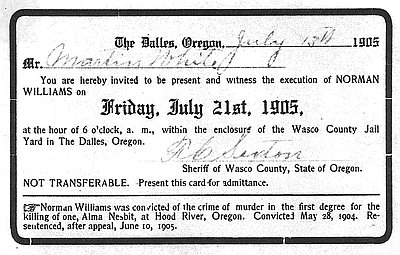 The Dalles, Oregon, July 13th 1905
Mr. Martin White
You are hereby invited to be present and witness the execution of NORMAN
WILLIAMS on
Friday, July 21st, 1905,
at the hour of 6 o'clock, a. m., within the enclosure of the Wasco County Jail
Yard in The Dalles, Oregon.
F C Sexton
Sheriff of Wasco County, State of Oregon.
NOT TRANSFERABLE. Present this card for admittance.
☞Norman Williams was convicted of the crime of murder in the first degree for the
killing of one, Alma Nesbit, at Hood River, Oregon. Convicted May 28, 1904. Re-
sentenced, after appeal, June 10, 1905.